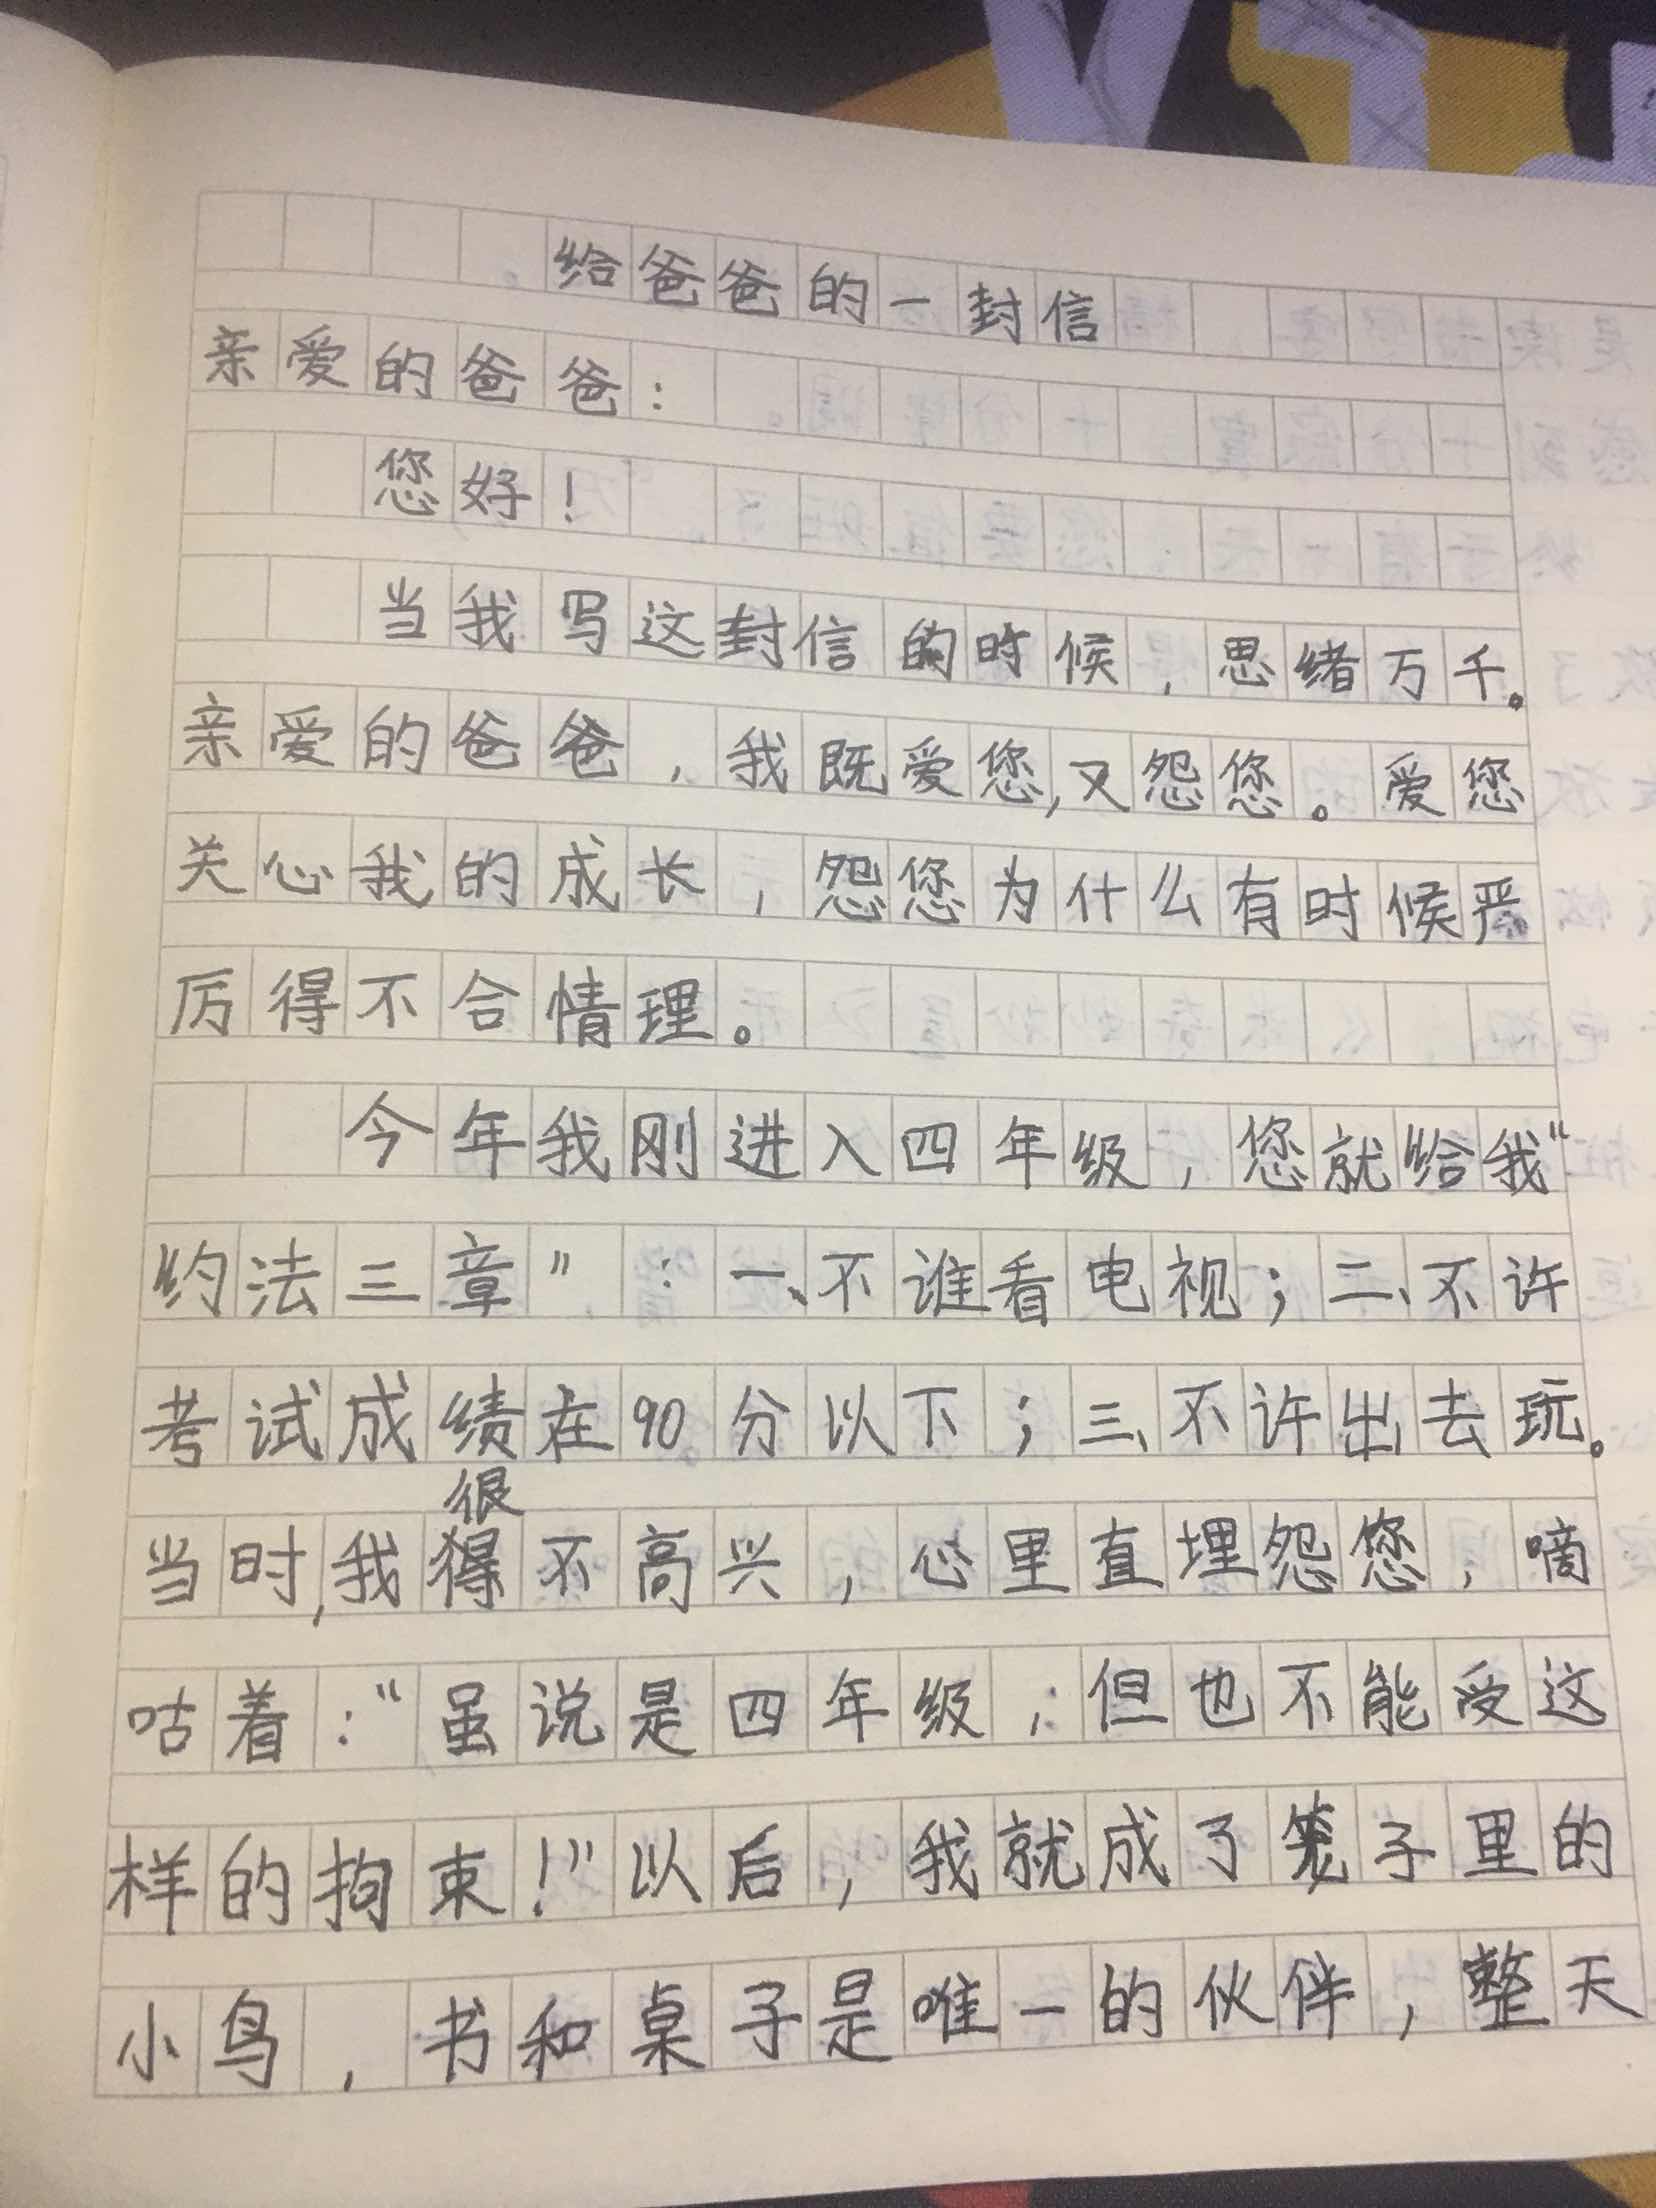 给爸爸的一封信
亲爱的爸爸：
您好！
当我写这封信的时候，思绪万千。
亲爱的爸爸，我既爱您，又怨您。爱您
关心我的成长，怨您为什么有时候严
厉得不合情理。
今年我刚进入四年级，您就给我“
约法三章”：一、不谁看电视；二、不许
考试成绩在90分以下；三、不许出去玩。
很
当时，我得不高兴，心里直埋怨您，嘀
咕着：“虽说是四年级，但也不能受这
样的拘束！”以后，我就成了笼子里的
小鸟，书和桌子是唯一的伙伴，整天